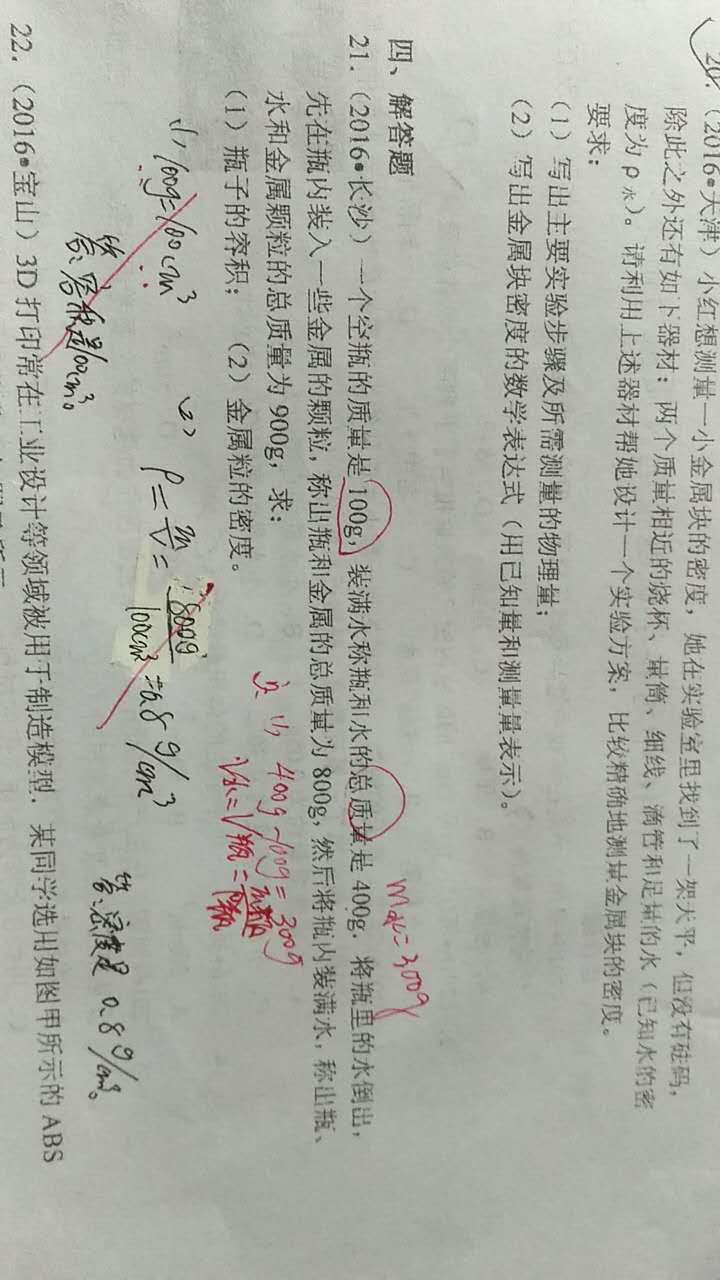 20.（2016•天津）小红想测量一小金属块的密度，她在实验室里找到了一架天平，但没有砝码，
除此之外还有如下器材：两个质量相近的烧杯、量筒、细线、滴管和足量的水（已知水的密
度为ρ水）。请利用上述器材帮她设计一个实验方案，比较精确地测量金属块的密度。
要求：
（1）写出主要实验步骤及所需测量的物理量；
（2）写出金属块密度的数学表达式（用已知量和测量量表示）。
四、解答题
m水=300g
21.（2016•长沙）一个空瓶的质量是100g，装满水称瓶和水的总质量是400g．将瓶里的水倒出，
先在瓶内装入一些金属的颗粒，称出瓶和金属的总质量为800g，然后将瓶内装满水，称出瓶、
水和金属颗粒的总质量为900g，求：
（1）瓶子的容积；（2）金属粒的密度。
(1) 400g-100g=300g
V水=V瓶=
(1) 100g=100cm³
答：容积是100cm³。
(2) ρ=m/V=800g/100cm³=0.8g/cm³
答：密度是0.8g/cm³。
22.（2016•宝山）3D打印常在工业设计等领域被用于制造模型．某同学选用如图甲所示的ABS